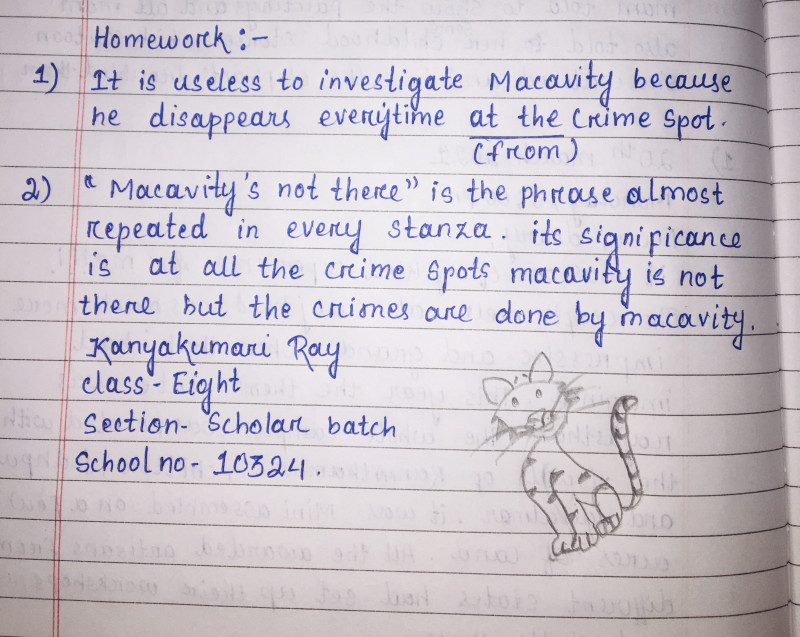 Homework :-
1) It is useless to investigate Macavity because
he disappears everytime at the Crime Spot.
(from)
2) "Macavity's not there" is the phrase almost
repeated in every stanza. its significance
is at all the crime spots macavity is not
there but the crimes are done by macavity.
Kanyakumari Ray
class - Eight
Section - Scholar batch
School no - 10324.